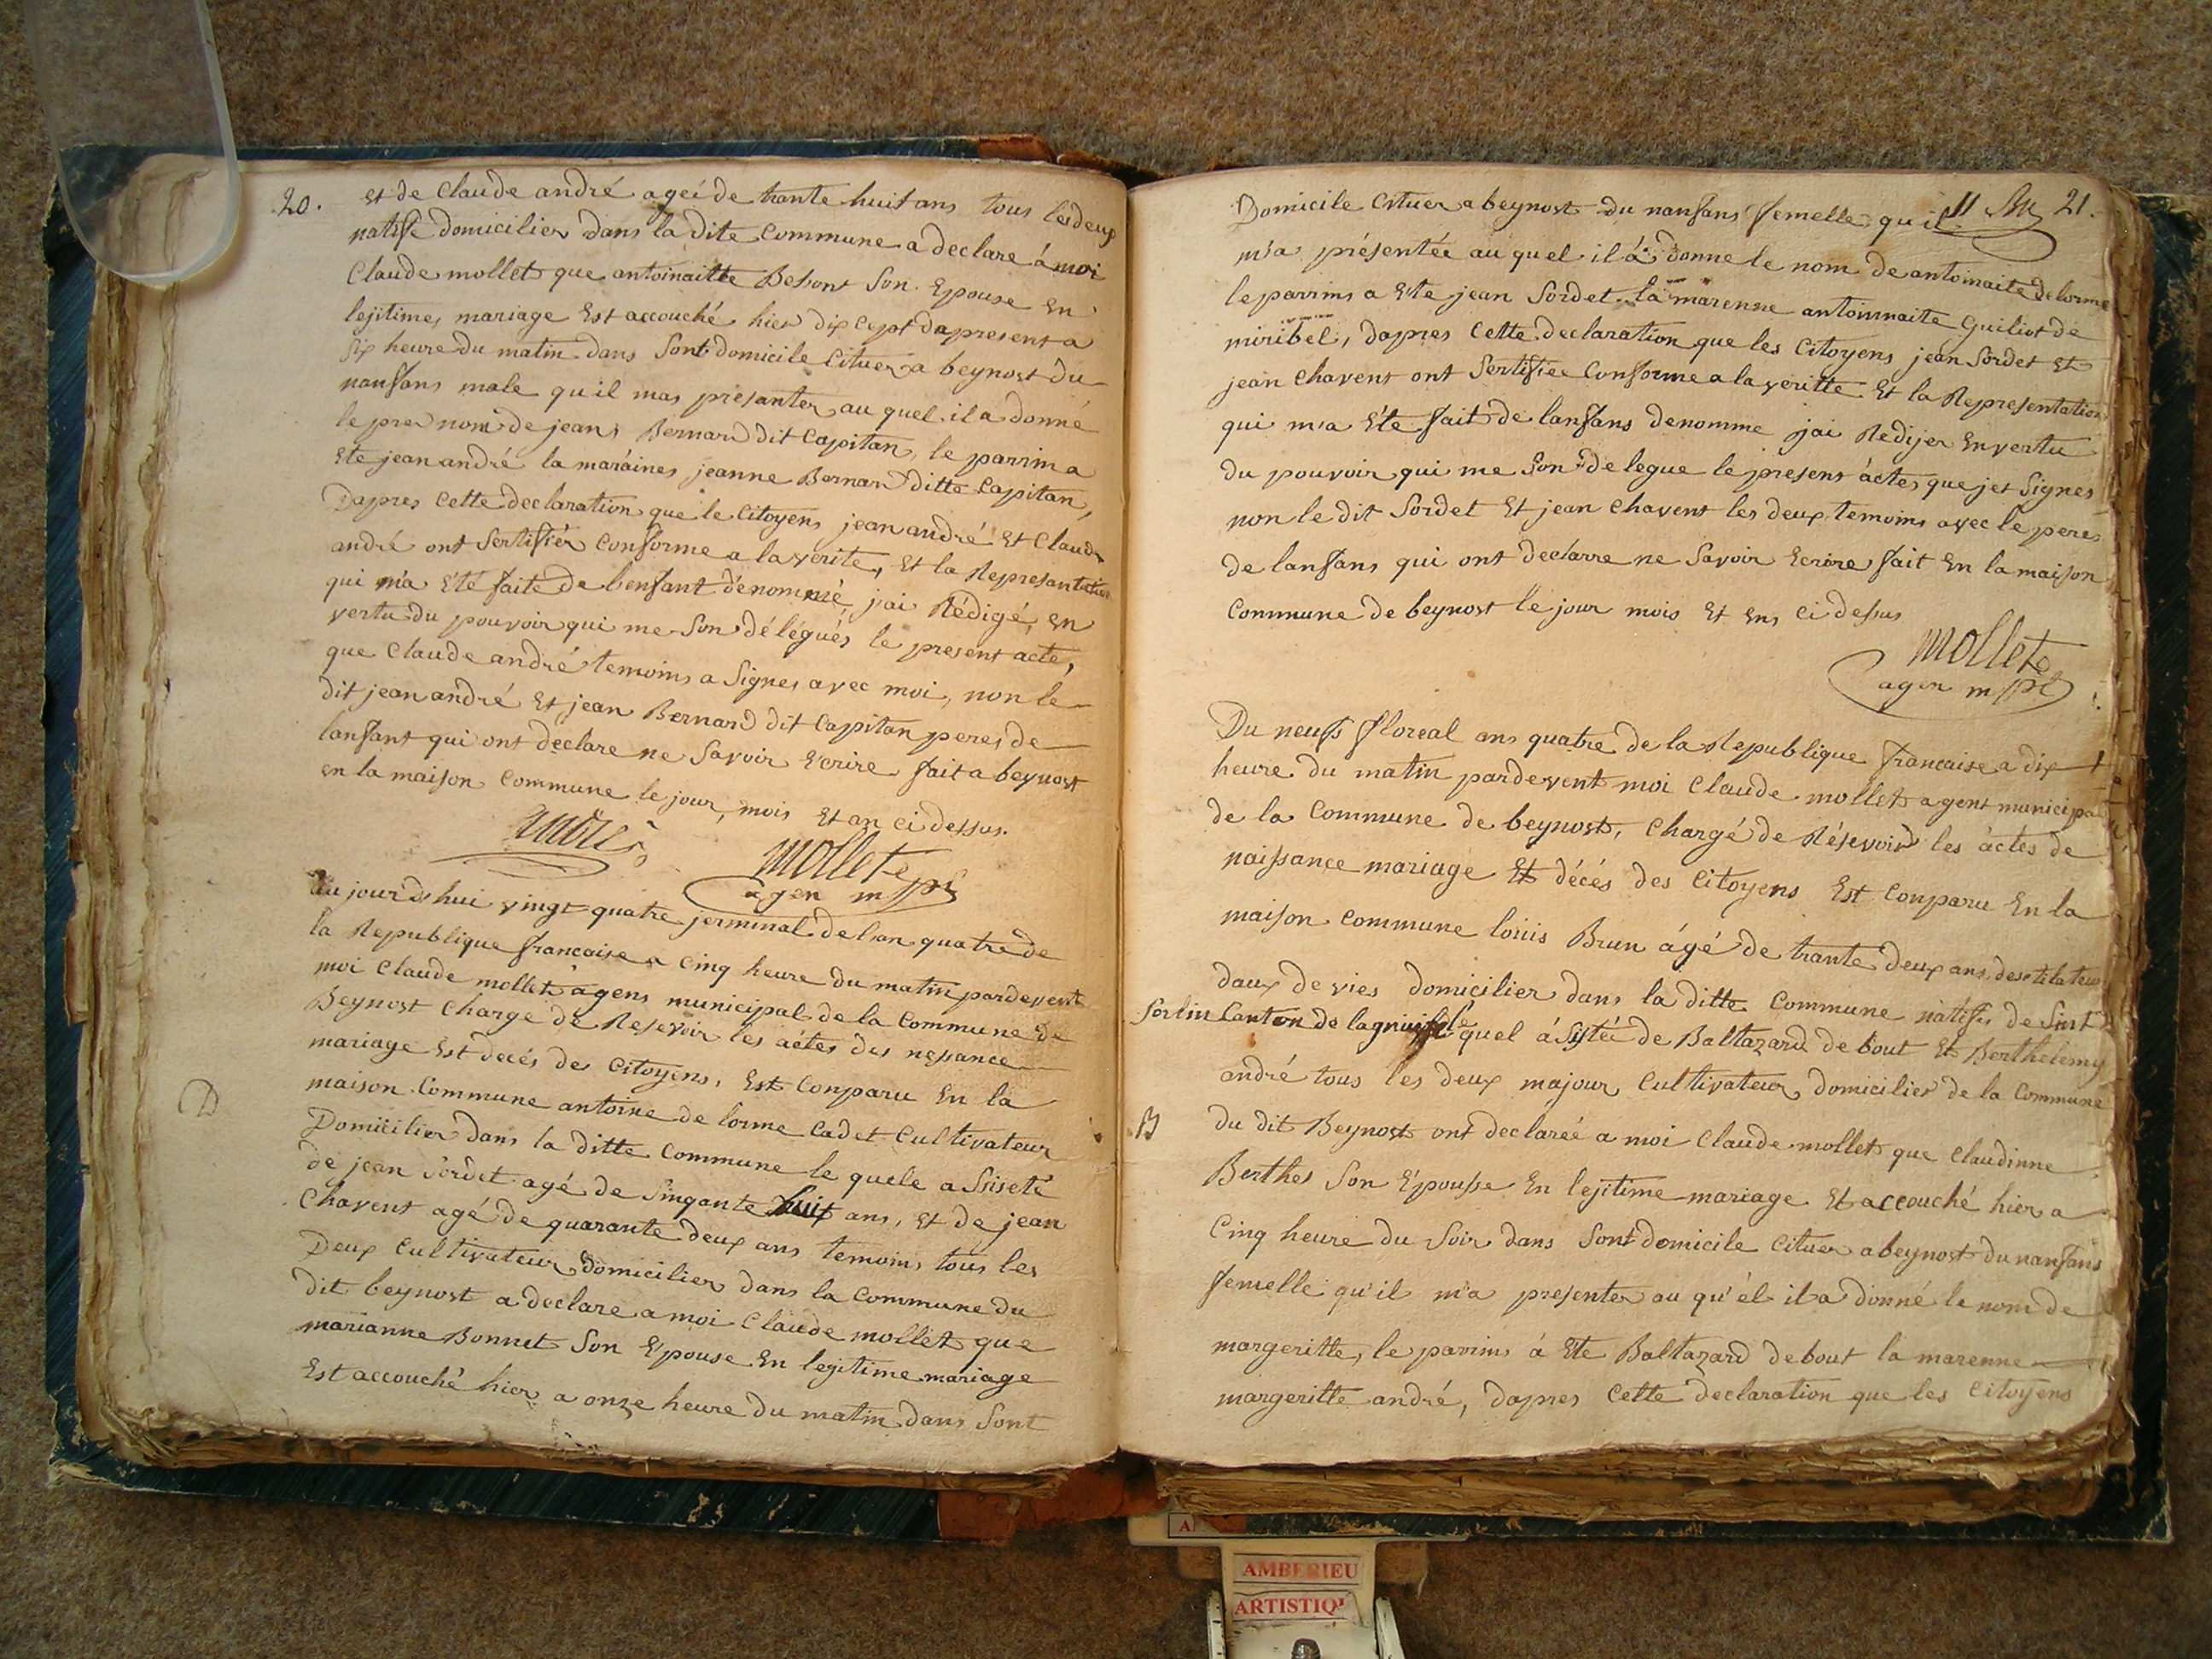 20.
et de Claude andré ageé de trante huit ans tous les deux
natife domicilier dans la dite Commune a declare á moi
Claude mollet que antoinaitte Besont Son Epouse En
lejitimes mariage Est accouché hier dix cept dapresent a
six heure du matin dans Sont domicile Cituer a beynost du
nanfans male qu'il mas présanter au quel il a donné
le pre nom de jean Bernard dit Capitan, le parrim a
Ete jean andré la maráines jeanne Bernard ditte Capitan,
Dapres Cette declaration que le Citoyens jean andré Et Claude
andré ont Sertifiér Conforme a la verite, Et la Represantation
qui m'a Eté faite de l'enfant dénommé, jai Rédigé, en
vertu du pouvoir qui me Son délégués le present acte,
que Claude andré temoins a Signes avec moi, non le
dit jean andré Et jean Bernard dit Capitan peres de
lanfant qui ont declare ne Savoir Ecrire fait a beynost
en la maison Commune le jour, mois Et an ci dessus.
andré
mollet
agen mpl
Au jour d'hui vingt quatre jerminal de l'an quatre de
la Republique francaise a Cinq heure du matin pardevent
moi Claude mollet agens municipal de la Commune de
Beynost Charge de Resevoir les áctes des nessance
mariage Est decés des Citoyens, Est Conparu En la
maison Commune antoine de lorme Cadet Cultivateur
D
Domicilier dans la ditte Commune le quele a Ssiseté
de jean Sordet agé de Sinqante huit ans, Et de jean
Chavent agé de quarante deux ans temoins tous les
Deux Cultivateur domicilier dans la Commune du
dit beynost a declare a moi Claude mollet que
marianne Bonnet Son Epouse En legitime mariage
Est accouché hier a onze heure du matin dans Sont
11 21.
Domicile Cituer a beynost du nanfans femelle qu il
m'a présentée au quel il á donne le nom de antoinaite delorme
le parrins a Ete jean Sordet la marenne antoinnaite Guiliot de
miribel, dapres Cette declaration que les Citoyens jean Sordet Et
jean Chavent ont Sertifiée Conforme a la veritte Et la Representation
qui m'a Ete fait de lanfans denomme jai Redijer En vertu
du pouvoir qui me Son delegue le present ácte, que jet Signes
non le dit Sordet Et jean Chavent les deux temoins avec le peres
de lanfans qui ont declarre ne Savoir Ecrire fait En la maison
Commune de beynost le jour mois Et ens ci dessus
mollet
agen mpl
Du neufs floreal ans quatre de la Republique francaise a dix
heure du matin pardevent moi Claude mollet agent municipal
de la Commune de beynost, Chargé de Résevoir les áctes de
naissance mariage Et décés des Citoyens Est Conparu En la
maison Commune loüis Brun ágé de trante deux ans, destilateur
daux de vies domicilier dans la ditte Commune natifs de Sint
Sorlin Canton de lagnieu le quel á Sistéé de Baltazard debout Et Berthelemy
andré tous les deux majour Cultivateur domicilier de la Commune
B
du dit Beynost ont declareé a moi Claude mollet que Claudinne
Berthet Son Epousse En lejitime mariage Et accouché hier a
Cinq heure du Soir dans Sont domicile Cituer a beynost du nanfans
femelle qu'il m'a presenter au qu'él il a donné le nom de
margeritte, le parrins á Ete Baltazard debout la marenne
margeritte andré, dapres Cette declaration que les Citoyens
AMBERIEU
ARTISTIQ